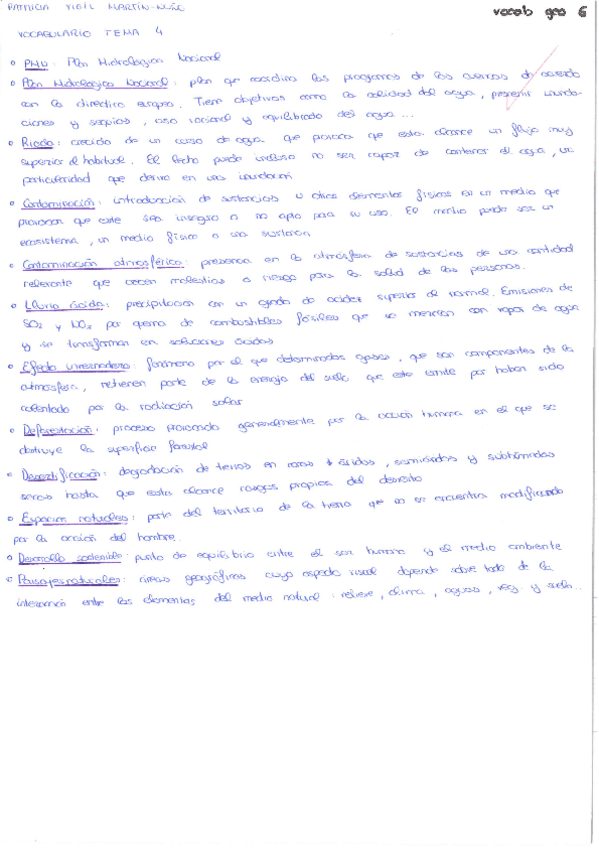 PATRICIA VIGIL MARTÍN-
vocab geo 6
VOCABULARIO TEMA 4
PNH: Plan Hidrológico Nacional
Plan Hidrológico Nacional: plan que coordina los programas de las cuencas de acuerdo
con la directiva europea. Tiene objetivos como la calidad del agua, prevenir inunda-
ciones y sequías, uso racional y equilibrado del agua...
Riada: crecida de un curso de agua que provoca que esta alcance un flujo muy
superior al habitual. El lecho puede incluso no ser capaz de contener el agua, un
particularidad que deriva en una inundación
Contaminación: introducción de sustancias u otros elementos físicos en un medio que
provocan que este sea inseguro o no apto para su uso. El medio puede ser un
ecosistema, un medio físico o una sustancia
Contaminación atmosférica: presencia en la atmósfera de sustancias de una cantidad
relevante que creen molestias o riesgo para la salud de las personas.
Lluvia ácida: precipitación con un grado de acidez superior al normal. Emisiones de
SO2 y NOx por quema de combustibles fósiles que se mezclan con vapor de agua
y se transforman en soluciones ácidas
Efecto invernadero: fenómeno por el que determinados gases, que son componentes de la
atmósfera, retienen parte de la energía del suelo que este emite por haber sido
calentado por la radiación solar
Deforestación: proceso provocado generalmente por la acción humana en el que se
destruye la superficie forestal
Desertificación: degradación de tierras en zonas áridas, semiáridas y subhúmedas
secas hasta que estas alcance rasgos propios del desierto
Espacios naturales: parte del territorio de la tierra que no se encuentra modificado
por la acción del hombre.
Desarrollo sostenible: punto de equilibrio entre el ser humano y el medio ambiente
Paisajes naturales: áreas geográficas cuyo aspecto visual depende sobre todo de la
interacción entre los elementos del medio natural: relieve, clima, aguas, veg. y suelo...